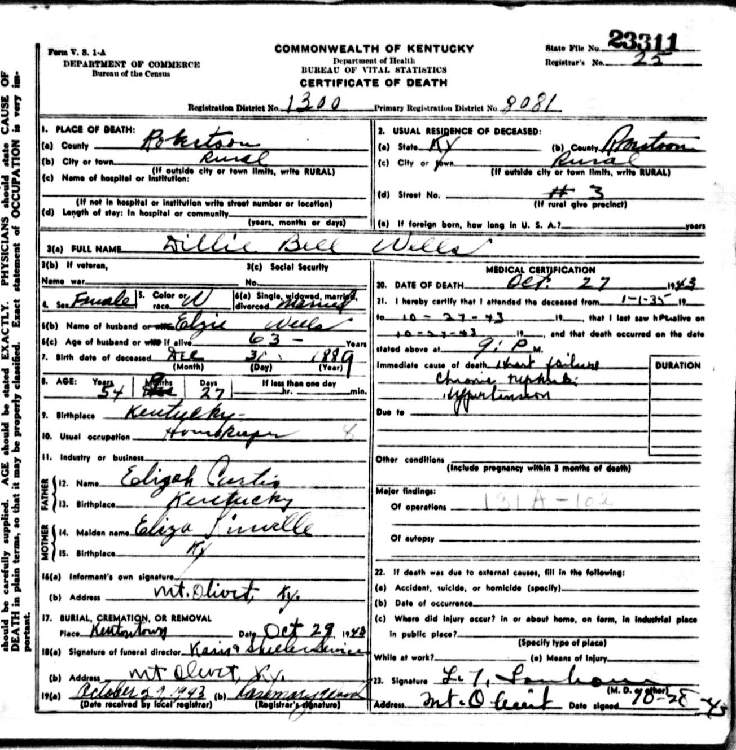 Form V. S. 1-A
DEPARTMENT OF COMMERCE
Bureau of the Census
COMMONWEALTH OF KENTUCKY
Department of Health
BUREAU OF VITAL STATISTICS
CERTIFICATE OF DEATH
State File No. 23311
Registrar's No. 25
Registration District No. 1300 Primary Registration District No. 8081
1. PLACE OF DEATH:
(a) County Robertson
(b) City or town Rural
(If outside city or town limits, write RURAL)
(c) Name of hospital or institution:
(If not in hospital or institution write street number or location)
(d) Length of stay: In hospital or community
(years, months or days)
2. USUAL RESIDENCE OF DECEASED:
(a) State Ky (b) County Robertson
(c) City or town Rural
(If outside city or town limits, write RURAL)
(d) Street No. # 3
(If rural give precinct)
(e) If foreign born, how long in U. S. A.? years
3(a) FULL NAME Dillie Bell Wells
3(b) If veteran,
Name war
3(c) Social Security
No.
4. Sex Female 5. Color or W 6(a) Single, widowed, married, divorced Married
6(b) Name of husband or wife Elzie Wells
6(c) Age of husband or wife if alive 63 - Years
7. Birth date of deceased Dec 31 1889
(Month) (Day) (Year)
8. AGE: Years 54 Months Days 27 If less than one day hr. min.
9. Birthplace Kentucky
10. Usual occupation Housekeeper
11. Industry or business
FATHER
12. Name Elizah Curtis
13. Birthplace Kentucky
MOTHER
14. Maiden name Eliza Linville
15. Birthplace Ky
16(a) Informant's own signature
(b) Address Mt. Olivet, Ky.
17. BURIAL, CREMATION, OR REMOVAL
Place Kentontown Date Oct 29 1943
18(a) Signature of funeral director
(b) Address Mt Olivet, Ky.
19(a) October 29, 1943 (b) Rosemary
(Date received by local registrar) (Registrar's signature)
MEDICAL CERTIFICATION
20. DATE OF DEATH Oct 27 1943
21. I hereby certify that I attended the deceased from 1-1-35 19
to 10-27-43, that I last saw h alive on
10-27-43, and that death occurred on the date
stated above at 9: P M.
Immediate cause of death Heart failure
Chronic nephritis
Hypertension
DURATION
Due to
Other conditions
(Include pregnancy within 3 months of death)
Major findings:
Of operations 131A-102
Of autopsy
22. If death was due to external causes, fill in the following:
(a) Accident, suicide, or homicide (specify)
(b) Date of occurrence
(c) Where did injury occur? in or about home, on farm, in industrial place
in public place?
(Specify type of place)
While at work? (e) Means of injury
23. Signature
(M. D. or other)
Address Mt-Olivet Date signed 10-28-43
should be carefully supplied. AGE should be stated EXACTLY. PHYSICIANS should state CAUSE OF
DEATH in plain terms, so that it may be properly classified. Exact statement of OCCUPATION is very im-
portant.